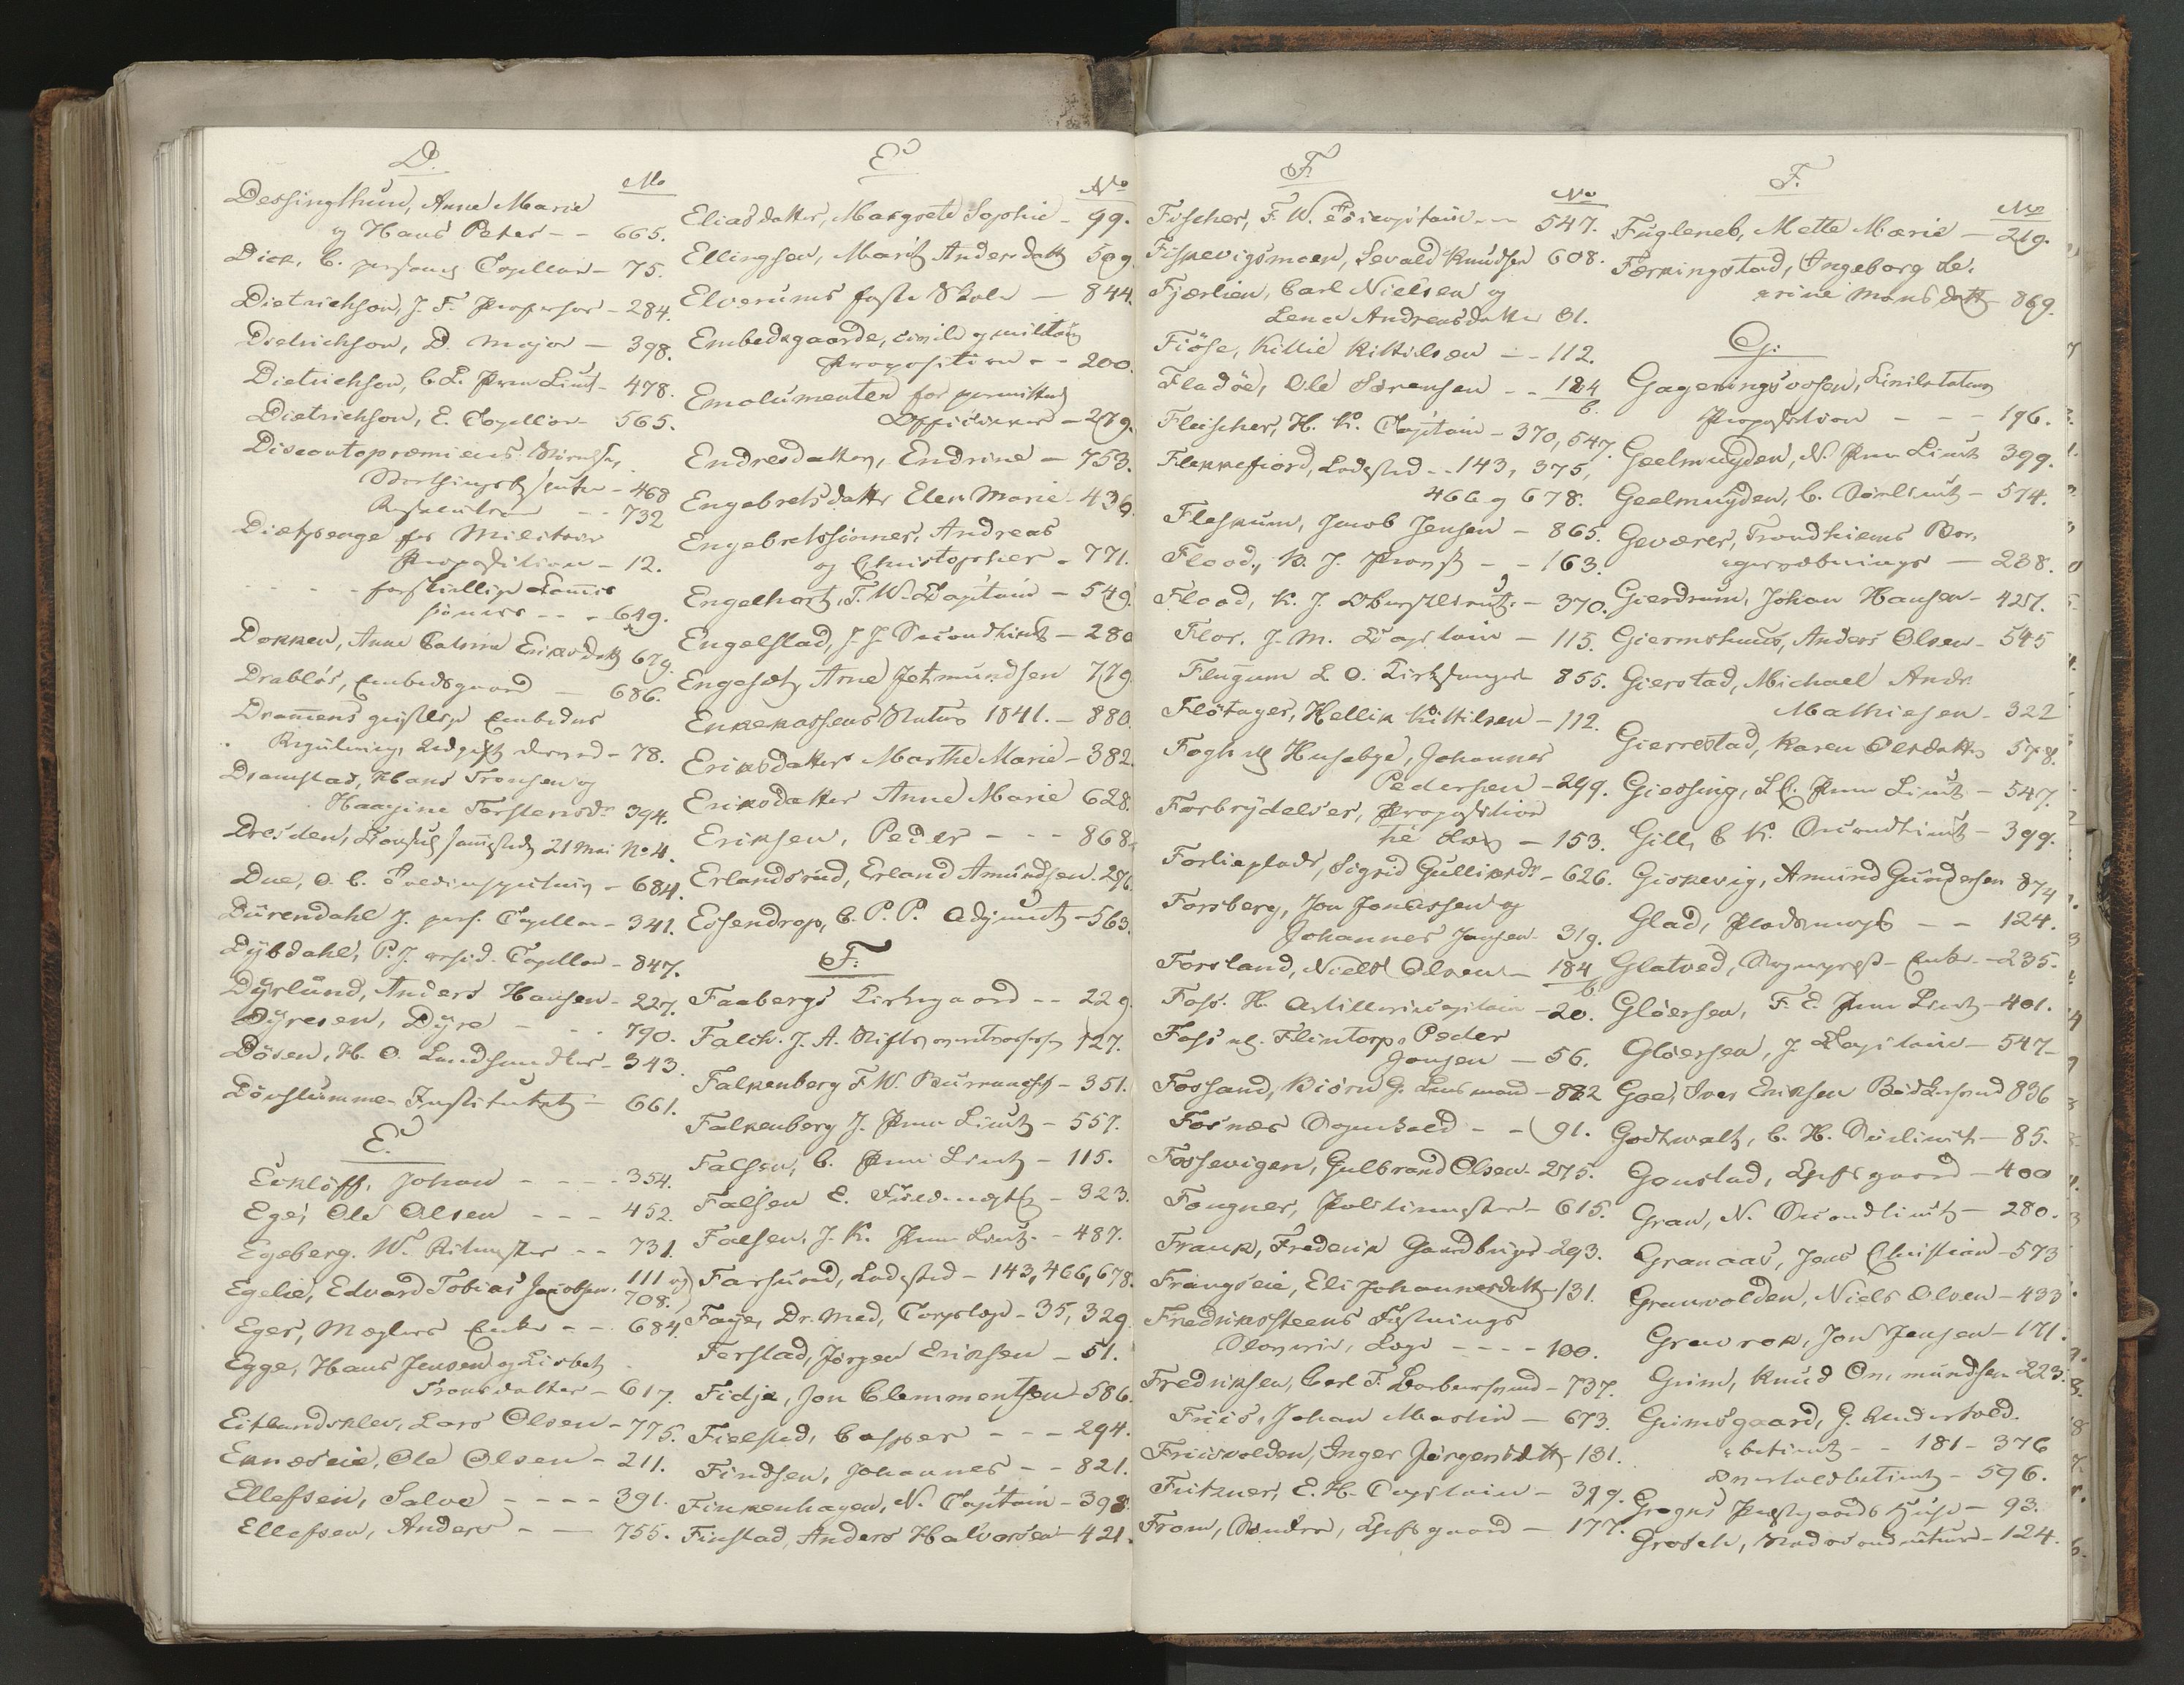 D.
No
Dessingthun, Anne Marie
og Hans Peter - - 665.
Dick, C. personel Capellan - 75.
Dietrichson, J. F. Professor - 284.
Dietrichson, D. Major - 398.
Dietrichson, C. L. Prem Lieut - 478.
Dietrichson, E. Capellan - 565.
Discontopræmiens
468
732
Diætpenge for Militaire
Proposition - 12.
forskiellige Commis
sioner - - - 649.
Dokken, Anne Cathrine Eriksdatt 679.
Drabløs, Embedsgaard - 686.
Dram̄ens geistlige Embeders
Regulering, Udgift derved - 78.
Dramstad, Hans Tronsen og
Haagine Torstensdr 394.
Dresden, Consul sam̄esteds 21 Mai No 4.
Due, O. C. - 684.
Dürendahl J. pers. Capellan - 341.
Dybdahl, P. J. resid. Capellan - 847.
Dyrlund, Anders Hansen - 227.
Dyresen, Dyre - - - 790.
Døsen, H. O. Landhandler - 343.
Døvstumme-Institutet - 661.
E.
Ecklöff, Johan - - - - 354.
Ege, Ole Olsen - - - 452.
Egeberg. W. Ritmester - - 731.
Egelie, Edvard Tobias Jacobsen. 111 og 708.
Eger, Mæglers Enke - - 684.
Egge, Hans Jensen og Lisbet
Tronsdatter - 617.
Eitlandsklev, Lars Olsen - 775.
Eknæseie, Ole Olsen - 211.
Ellefsen, Salve - - - - 391.
Ellefsen, Anders - - 755.
E
No
Eliasdatter, Margrete Sophie - 99.
Ellingsen, Marit Andersdatt 509.
Elverums faste Skole - 844.
Embedsgaarde, civile og militaire
Proposition - - 200.
Emolumenter for permitterede
Officerer - 279.
Endresdatter, Endrine - 753.
Engebretsdatter Elen Marie - 436.
Engebretssønner, Andreas
og Christopher - 771.
Engelhart, F. W. Capitain - 549.
Engelstad, J. J. Secondlieut - 280
Engeset, Arne Jetmundsen 779.
Enkekassens Status 1841. - 880.
Eriksdatter Marthe Marie - 382.
Eriksdatter Anne Marie 628.
Eriksen, Peder - - - 868.
Erlandsrud, Erland Amundsen. 276.
Essendrop, C. P. P. Adjunct - 563.
F.
Faabergs Kirkegaard - - 229.
Falch. J. A. 127.
Falkenberg F. W. 351.
Falkenberg J. Prem Lieut - 557.
Falsen, C. Prem Lieut - 115.
Falsen E. - 323.
Falsen, J. K. Prem Lieut - 487.
Farsund, Ladested - 143, 466, 678.
Faye, Dr. Med, Corpslæge - 35, 329.
Ferstad, Jørgen Eriksen - 51.
Fidje, Jon Clemmentsen - 586.
Fielsted, Casper - - - 294.
Findsen, Johannes - - 821.
Finkenhagen, N. Capitain - 398.
Finstad, Anders Halvorsen - 421.
F.
No
Fischer, F. W. - - - 547.
Fiskevigsmoen, Sevald Knudsen 608.
Fjærlien, Carl Nielsen og
Lene Andreasdatter 81.
Fiöse, Killie Kittilsen - - 112.
Fladöe, Ole Sørensen - - 184 b.
Fleischer, H. K. Capitain - 370, 547.
Flekkefiord, Ladested - - 143, 375,
466 og 678.
Fleskum, Jacob Jensen - 865.
Flood, B. J. Provst - - 163.
Flood, K. J. Oberstlieut. - 370.
Flor. J. M. Capitain - 115.
Flugum L. O. Kirkesanger 855.
Flötager, Hellik Kittilsen - 112.
Fogh Husebye, Johannes
Pedersen - 299.
Forbrydelser, Proposition
til Lov - 153.
Forlieplads, Sigrid Gulliksdr - 626.
Forsberg, Jon Jonassen og
Johannes Jonsen - 319.
Forsland, Niels Olsen - 184 b.
Foss. H. Artillericapitain - 20.
Foss Flintorp, Peder
Jonsen - 56.
Fossand, Biörn G. Lensmand - 882
Fosnæs Sognekald - - 91.
Fossevigen, Gulbrand Olsen - 275.
Fougner, Politimester - 615.
Frank, Frederik Gaardbruger - 293.
Frangseie, Eli Johannesdatt - 131.
Fredrikssteens Fæstnings
Læge - - - - 100.
Fredriksen, Carl F. - 737.
Friis, Johan Martin - 673.
Friisvolden, Inger Jörgensdatt - 131.
Fritzner, E. H. Capitain - 399.
From, Søndre, Chefsgaard - 177.
F.
No
Fugleneb, Mette Marie - 219.
Færkingstad, Ingeborg Se-
verine Monsdatt - 869.
G.
Gageringsvæsen, Civiletatens
Proposition - - - 196.
Geelmuyden, N. Prem Lieut 399.
Geelmuyden, C. Sølieut - 574.
Geværer, Trondhiems Bor-
gervæbnings - 238.
Gierdrum, Johan Hansen - 427.
Giermshuus, Anders Olsen - 545
Gierstad, Michael Andr.
Mathiesen - 322
Gierrestad, Karen Olsdatter 578.
Giessing, L. C. Prem Lieut - 547.
Gill, C. K. Secondlieut - 399.
Giskevig, Amund Gundersen 874
Glad, Pladsmajor - - 124.
Glatved, Sogneprest Enke - 235.
Gløersen, F. E. Prem Lieut - 401.
Gløersen, J. Capitain - 547 -
Goe, Iver Eriksen Bödkersvend 836
Godtwalt, C. H. Sølieut - 85.
Gonstad, Chefsgaard - 400
Gran, N. Secondlieut - 280.
Granaas, Jens Christian - 573
Granvolden, Niels Olsen - 433
Gravrok, Jon Jensen - 171.
Grim, Knud On. mundsen 223.
Grimsgaard, G. Undertold-
betient - - 181 - 376
Overtoldbetient - 596.
Grogns Prestgaards Huse - 93.
Grosch, - 124.